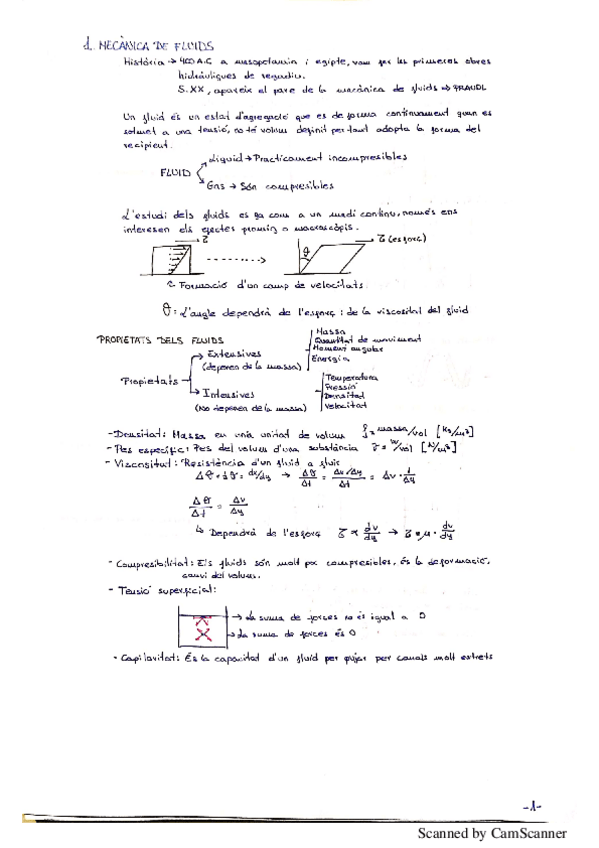 1. MECÀNICA DE FLUIDS
Història → 400 A.C a mesopotamia i egipte, van fer les primeres obres
hidràuliques de regadiu.
S.XX, apareix el pare de la mecànica de fluids ⇒ PRANDL
Un fluid és un estat d'agregació que es deforma continuament quan es
sotmet a una tensió, no té volum definit per tant adopta la forma del
recipient.
Líquid → Practicament incompresibles
FLUID
Gas → Són compresibles
L'estudi dels fluids es fa com a un medi continu, només ens
interesen els efectes promitg o macroscòpis.
τ
τ (esforç)
θ
Formació d'un camp de velocitats.
θ: L'angle dependrà de l'esforç i de la viscositat del fluid
PROPIETATS DELS FLUIDS
Massa
Quantitat de moviment
Moment angular
Energia
Extensives
(depenen de la massa)
Propietats
Intensives
(No depenen de la massa)
Temperatura
Pressió
Densitat
Velocitat
- Densitat: Massa en una unitat de volum ρ = massa/vol [kg/m³]
- Pes específic: Pes del volum d'una substància γ = W/vol [N/m³]
- Viscositat: Resistència d'un fluid a fluir
Δθ/Δt = (Δv/Δy)/Δt
Δθ/Δt = Δv/Δy
↳ Dependrà de l'esforç τ ∝ dv/dy → τ = μ · dv/dy
- Compresibilitat: Els fluids són molt poc compresibles, és la deformació,
canvi del volum.
- Tensió superficial:
→ La suma de forces no és igual a 0
→ La suma de forces és 0
- Capilaritat: És la capacitat d'un fluid per pujar per canals molt estrets
-1-
Scanned by CamScanner